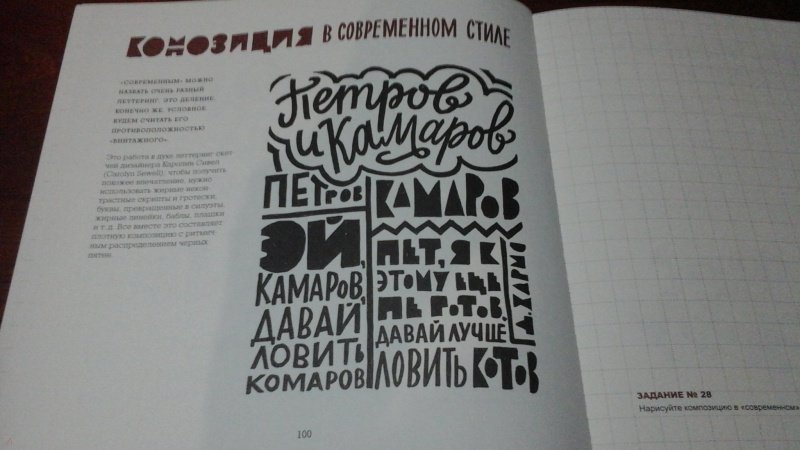 КОМПОЗИЦИЯ В СОВРЕМЕННОМ СТИЛЕ
«СОВРЕМЕННЫМ» МОЖНО
НАЗВАТЬ ОЧЕНЬ РАЗНЫЙ
ЛЕТТЕРИНГ. ЭТО ДЕЛЕНИЕ,
КОНЕЧНО ЖЕ, УСЛОВНОЕ.
БУДЕМ СЧИТАТЬ ЕГО
ПРОТИВОПОЛОЖНОСТЬЮ
«ВИНТАЖНОГО».
Это работа в духе леттеринг-скет-
чей дизайнера Каролин Сивел
(Carolyn Sewell), чтобы получить
похожее впечатление, нужно
использовать жирные некон-
трастные скрипты и гротески,
буквы, превращенные в силуэты,
жирные линейки, баблы, плашки
и т. д. Все вместе это составляет
плотную композицию с ритмич-
ным распределением черных
пятен.
Петров
и Камаров
ПЕТРОВ
ЭЙ,
КАМАРОВ,
ДАВАЙ
ЛОВИТЬ
КОМАРОВ
КАМАРОВ
НЕТ, Я К
ЭТОМУ ЕЩЕ
НЕ ГОТОВ,
ДАВАЙ ЛУЧШЕ
ЛОВИТЬ КОТОВ
Д. ХАРМС
100
ЗАДАНИЕ № 28
Нарисуйте композицию в «современном»